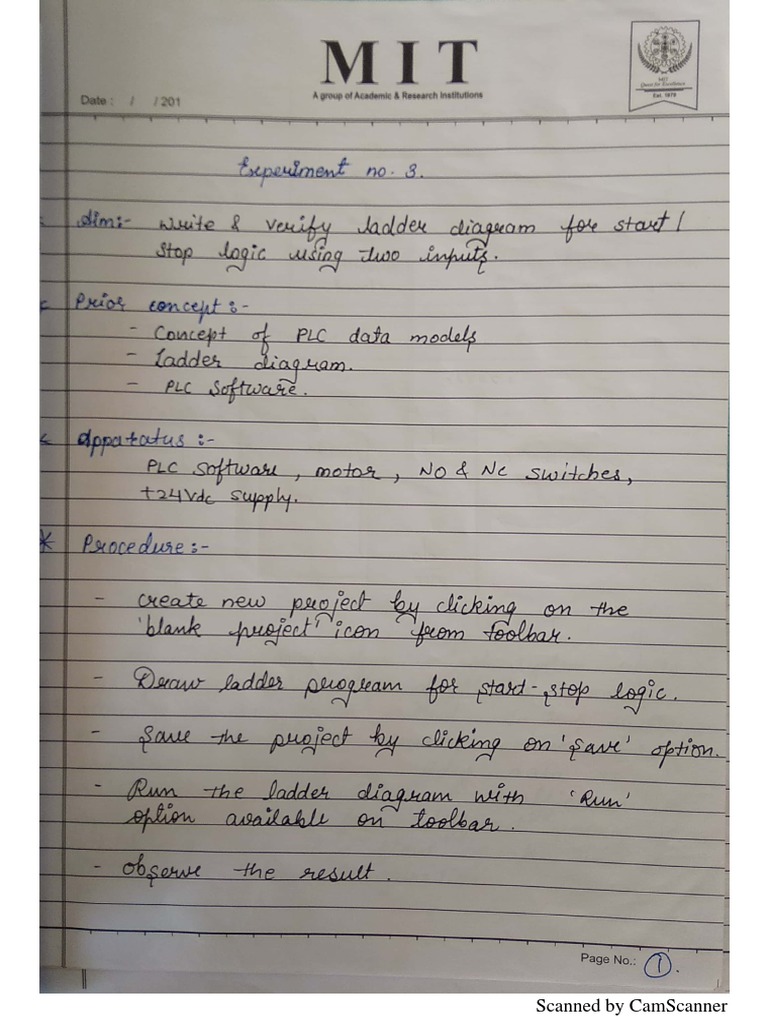 MIT
A group of Academic & Research Institutions
MIT
Quest for Excellence
Estd. 1979
Date : / / 201
Experiment no. 3.
Aim:- Write & verify ladder diagram for start /
stop logic using two inputs.
Prior concept :-
- Concept of PLC data models
- Ladder diagram.
- PLC Software.
Apparatus :-
PLC software, motor, NO & NC switches,
+24Vdc supply.
* Procedure :-
- create new project by clicking on the
'blank project' icon from toolbar.
- Draw ladder program for start-stop logic.
- Save the project by clicking on 'Save' option.
- Run the ladder diagram with 'Run'
option available on toolbar.
- observe the result.
Page No.: 1.
Scanned by CamScanner